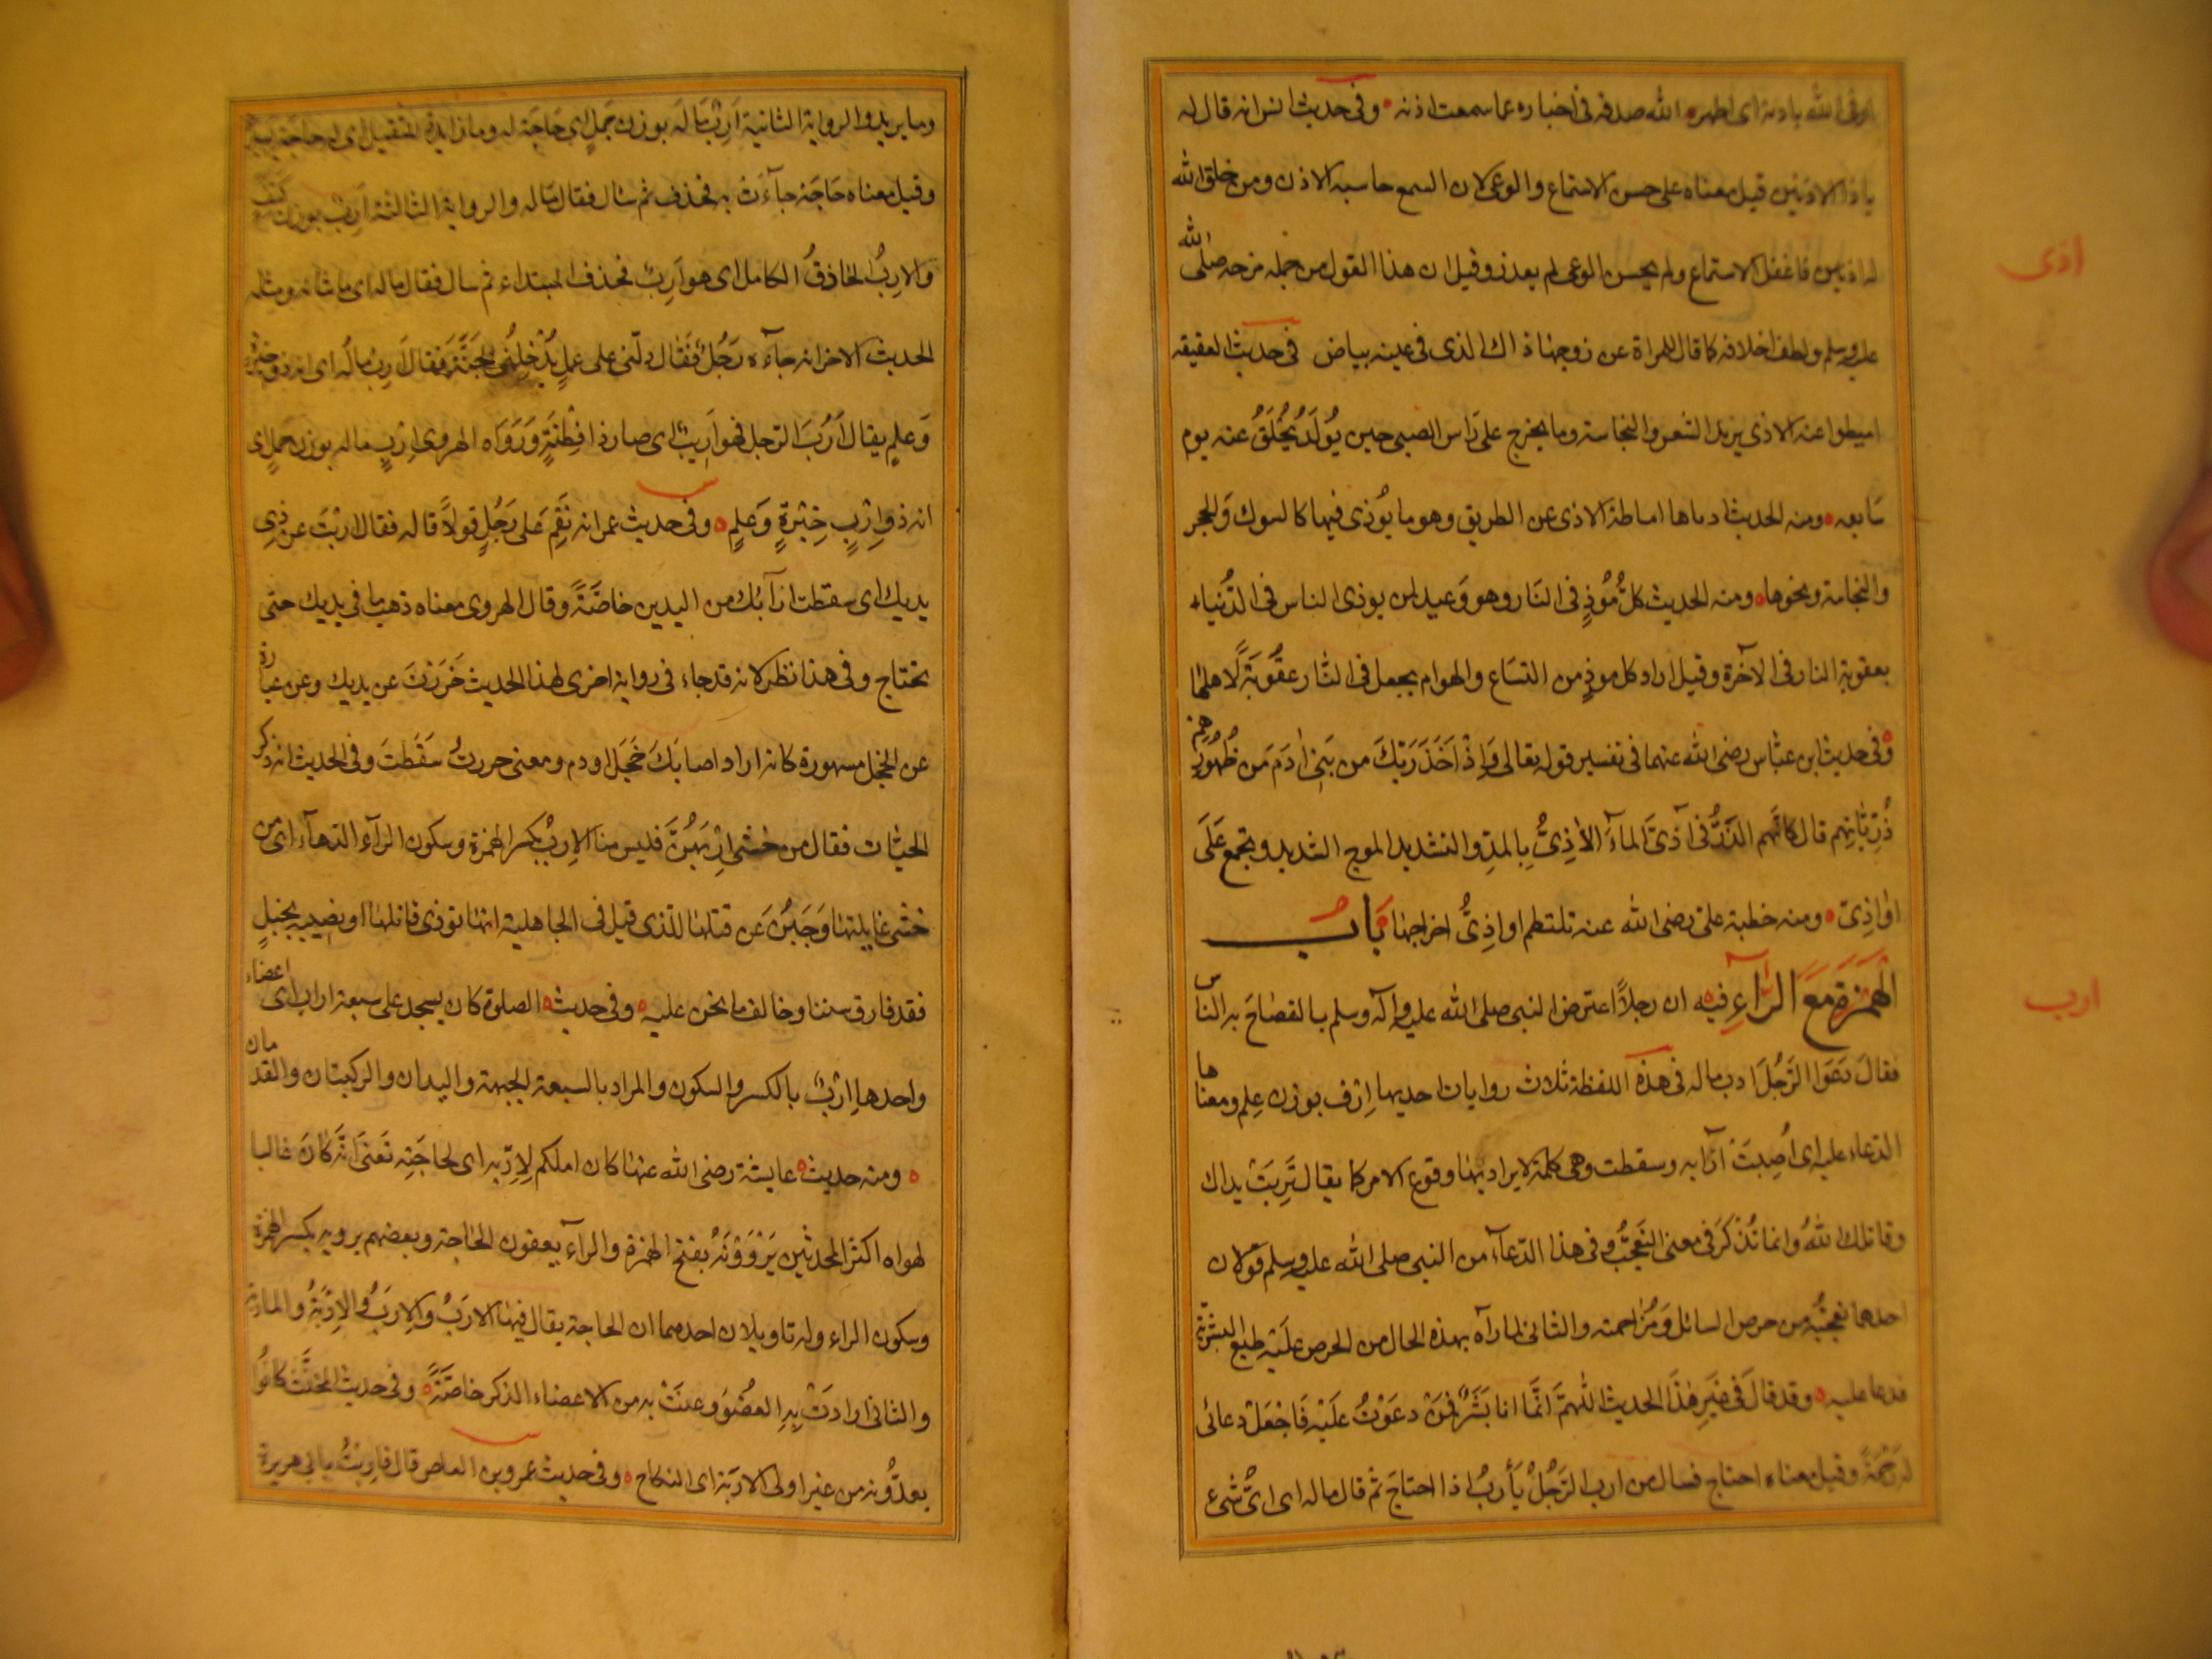 اوفى الله باذنه اى اظهره الله صدقه فى اخباره عما سمعت اذنه وفى حديث انس انه قال له
يا ذا الاذنين قيل معناه على حسن الاستماع والوعى لان السمع حاسة الاذن ومن خلق الله
له اذنين فاغفل الاستماع ولم يحسن الوعى لم يعذر وقيل ان هذا القول من جملة مزحه صلى الله
عليه وسلم ولطف اخلاقه كما قال للمراة عن زوجها ذاك الذى فى عينه بياض فى حديث العقيقه
اذى
اميطوا عنه الاذى يريد الشعر والنجاسة وما يخرج على رَاس الصبى حين يُولَدُ يُحْلَقُ عنه يوم
سَابعه ومنه الحديث ادناها اماطة الاذى عن الطريق وهو ما يُوذى فيها كالشوك وَالحجر
والنجاسة ونحوها ومنه الحديث كلُّ مُوْذٍ فى النَار وهو وَعيد لمن يوذى الناس فى الدُّنيا
بعقوبة النار فى الآخرة وقيل اراد كل موذٍ من السّبَاع والهوام يجعل فى النَّار عقُوبَةً لاهلها
وفى حديث ابن عبَّاس رضى الله عنهما فى تفسير قوله تعالى وَاِذْ اَخَذَ رَبّكَ من بَنِى اٰدَمَ مَن ظُهُورِهم
ذُرّيَّاتِهم قال كانَّهم الذَرُّ فى آذىّ المآءَ الآذِىُّ بِالمدّ والتشديد الموج الشديد ويجمع عَلَى
اوَاذِىّ ومنه خطبة علىّ رضى الله عنه تلتطم اواذِىُّ امواجها بَابُ
الْهَمْزَةِ مَعَ الرَّآءِ فيه ان رجلاً اعترض النبى صلى الله عليه وآله وسلم يسا له فصَاحَ به الناس
ارب
فقالَ دَعَوَا الرَّجُلَ ارب ماله فى هذه اللفظة ثلاث روايات احديها اِرَبَ بوزن عِلم ومعناها
الدّعاء عليه اى اُصِيبَتْ آرَابه وسقطت وهى كلمة لا يراد بها وقوع الامر كما يقال تَرِبَتْ يداك
وقاتلك اللّٰهُ وانما تُذكَرُ فى معنى التَّعَجُّبُ وفى هذا الدّعآء من النبى صلى الله عليه وسلم قولان
احدهما تعجبُّه من حرص السائل وَمُزَاحمته والثانى لما رآه بهذه الحال من الحرص غلَبَه طبع البشريّة
فدعا عليه وقد قالَ فى غيرِ هٰذَا الحديث اللهمَّ انَّما انا بَشَرٌ فمَنْ دعَوْتُ علَيْه فَاجْعَلْ دعائى
له رَحْمَةً وقيل معناه احتاج فسال من ارب الرّجُلُ يَأرَبُ اذا احتاجَ ثم قال ماله اى اىُّ شىء
وما يريد والرواية الثانية اَرَبٌ مَا لَه بوزن جَمَلٍ اى حَاجَة له وما زايدة للتقليل اى له حاجة يسيرة
وقيل معناه حَاجَة جآءَت به فحذف ثم سَال فقال مَا له والرواية الثالثة اَرِبٌ بوزن كَتِفٍ
وَالارِبُ الحَاذقُ الكامل اى هو اَرِبٌ فحذف المبتداء ثم سال فقال ماله اى ما شانه ومثله
الحديث الاخر انه جآءه رَجُلٌ فَقَالَ دلّنى على عملٍ يُدْخلُنِى الْجَنَّةَ فَقالَ اَرِبٌ مالَه اى انه ذو خِبْرة
وَعلِمٍ يقال اَرُبَ الرّجل فهو اَرِيبٌ اى صار ذا فِطْنَةٍ وَرَوَاه الهروى اِرْبٍ ماله بوزن حِملٍ اى
انه ذو اِرْبٍ خِبْرةٍ وَعلمٍ وفى حديث عمر انه نَقِمَ عَلى رَجُلٍ قولاً قاله فقال اَرِبْتَ عن ذِى
يديك اى سقطت ارَابُك من اليدين خاصَّةً وقال الهروى معناه ذهب ما فى يديك حتى
تحتاج وفى هذا نظر لانه قد جاء فى رواية اخرى لهذا الحديث خَرَرْتَ عن يديك وهى عبارة
عن الخجل مشهورة كانه اراد اصابَكَ خَجَل او دم ومعنى خررتُ سَقَطتَ وفى الحديث انه ذكر
الحيّات فقال من خشى اِرْبَهُنَّ فليس منّا الاِربُ بكسر الهمزة وسكون الراء الدّهآء اى من
خشى غايلتها وَجَبُنَ عن قتلها للّذى قيل فى الجاهلية انها توذى قاتلها او تصيبه بخبلٍ
فقد فارق سنتنا وخالف ما نحن عليه وفى حديث الصلوة كان يسجد على سبعة ارابٍ اى اعضاء
واحدها اِرْبٌ بالكسر والسكون والمراد بالسبعة الجبهة واليدان والركبتان والقدمان
ومنه حديث عايشة رضى الله عنها كان املككم لاِرْبِه اى لحاجَتِه تَعنى اَنَّه كَانَ غالبا
لهواه اكثرَ المحدثين يَرْوُوْنَهُ بفتح الهمزة والرآء يعنون الحَاجة وبعضهم يرويه بكسر الهمزة
وسكون الراء وله تاويلان احدهما ان الحاجة يقال فيها الارَبُ والاِربُ والاِرْبَةُ والماربة
والثانى ارادَتْ بِه العضُوَ وعنَتْ به من الاعضاء الذكر خاصَّةً وفى حديث المخنّث كانُوا
يعدُّونه من غير اولى الاربَة اى النكاح وفى حديث عمرو بن العاص قال فاَرِبْتُ بابى هريرة